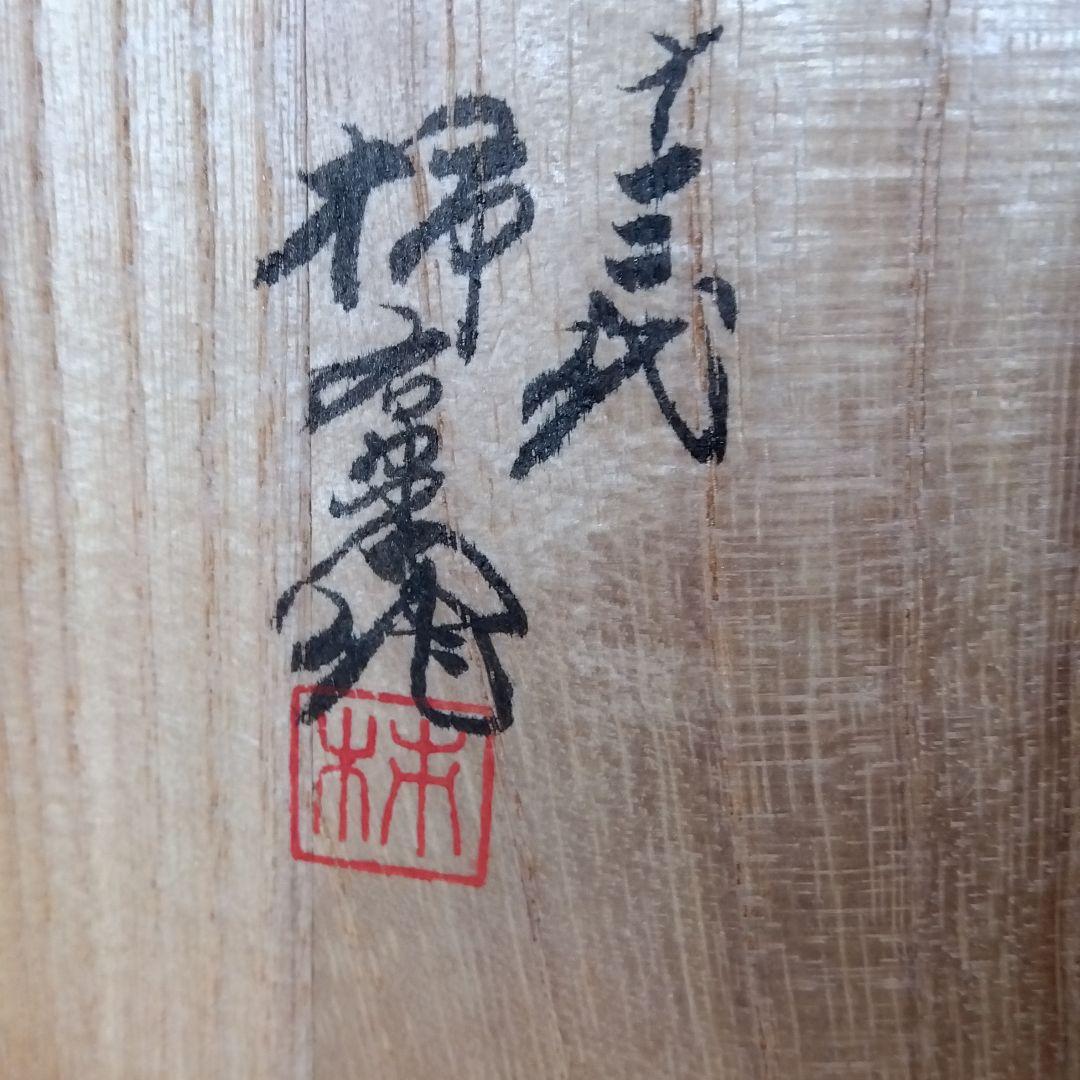 十三代
柿右衛門